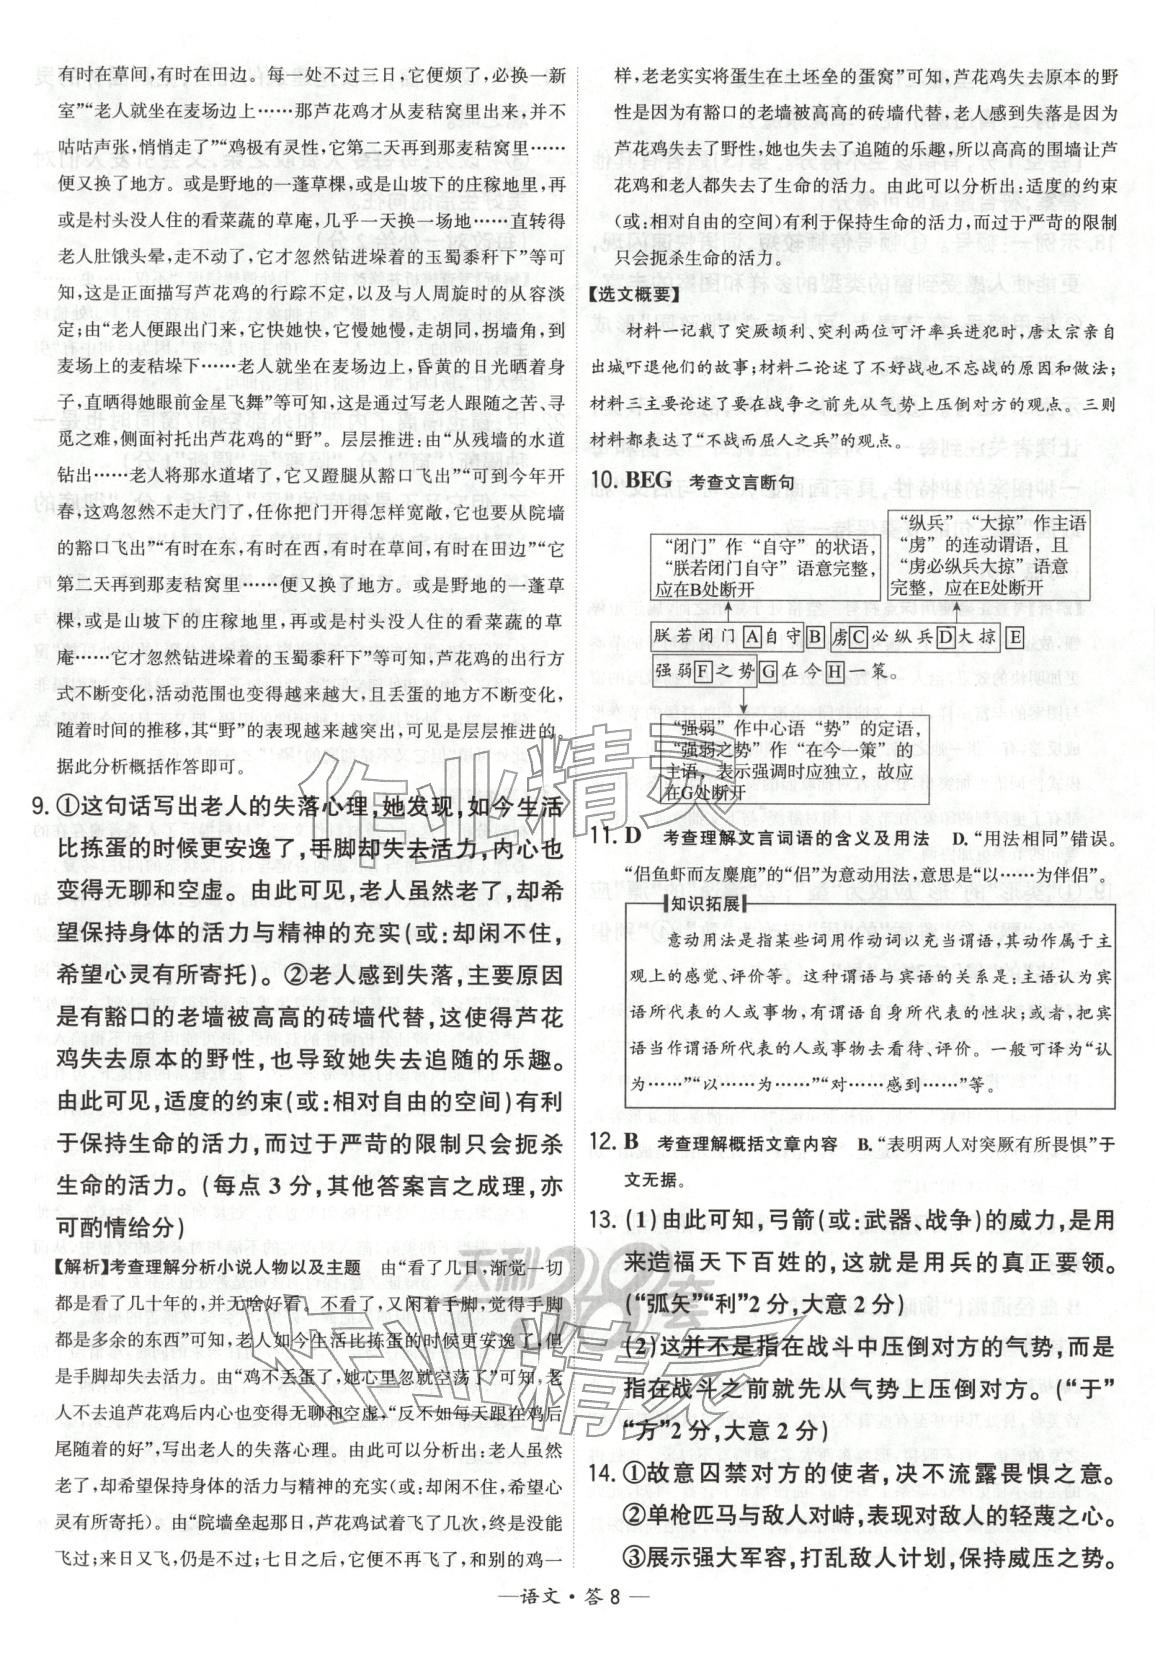 有时在草间,有时在田边。每一处不过三日,它便烦了,必换一新
室”“老人就坐在麦场边上……那芦花鸡才从麦秸窝里出来,并不
咕咕声张,悄悄走了”“鸡极有灵性,它第二天再到那麦秸窝里……
便又换了地方。或是野地的一蓬草棵,或是山坡下的庄稼地里,再
或是村头没人住的看菜蔬的草庵,几乎一天换一场地……直转得
老人肚饿头晕,走不动了,它才忽然钻进垛着的玉蜀黍秆下”等可
知,这是正面描写芦花鸡的行踪不定,以及与人周旋时的从容淡
定;由“老人便跟出门来,它快她快,它慢她慢,走胡同,拐墙角,到
麦场上的麦秸垛下……老人就坐在麦场边上,昏黄的日光晒着身
子,直晒得她眼前金星飞舞”等可知,这是通过写老人跟随之苦、寻
觅之难,侧面衬托出芦花鸡的“野”。层层推进:由“从残墙的水道
钻出……老人将那水道堵了,它又蹬腿从豁口飞出”“可到今年开
春,这鸡忽然不走大门了,任你把门开得怎样宽敞,它也要从院墙
的豁口飞出”“有时在东,有时在西,有时在草间,有时在田边”“它
第二天再到那麦秸窝里……便又换了地方。或是野地的一蓬草
棵,或是山坡下的庄稼地里,再或是村头没人住的看菜蔬的草
庵……它才忽然钻进垛着的玉蜀黍秆下”等可知,芦花鸡的出行方
式不断变化,活动范围也变得越来越大,且丢蛋的地方不断变化,
随着时间的推移,其“野”的表现越来越突出,可见是层层推进的。
据此分析概括作答即可。
9. ①这句话写出老人的失落心理,她发现,如今生活
比拣蛋的时候更安逸了,手脚却失去活力,内心也
变得无聊和空虚。由此可见,老人虽然老了,却希
望保持身体的活力与精神的充实(或:却闲不住,
希望心灵有所寄托)。②老人感到失落,主要原因
是有豁口的老墙被高高的砖墙代替,这使得芦花
鸡失去原本的野性,也导致她失去追随的乐趣。
由此可见,适度的约束(或:相对自由的空间)有利
于保持生命的活力,而过于严苛的限制只会扼杀
生命的活力。(每点 3 分,其他答案言之成理,亦
可酌情给分)
【解析】考查理解分析小说人物以及主题 由“看了几日,渐觉一切
都是看了几十年的,并无啥好看。不看了,又闲着手脚,觉得手脚
都是多余的东西”可知,老人如今生活比拣蛋的时候更安逸了,但
是手脚却失去活力。由“鸡不丢蛋了,她心里忽就空荡了”可知,老
人不去追芦花鸡后内心也变得无聊和空虚,“反不如每天跟在鸡后
尾随着的好”,写出老人的失落心理。由此可以分析出:老人虽然
老了,却希望保持身体的活力与精神的充实(或:却闲不住,希望心
灵有所寄托)。由“院墙垒起那日,芦花鸡试着飞了几次,终是没能
飞过;来日又飞,仍是不过;七日之后,它便不再飞了,和别的鸡一
样,老老实实将蛋生在土坯垒的蛋窝”可知,芦花鸡失去原本的野
性是因为有豁口的老墙被高高的砖墙代替,老人感到失落是因为
芦花鸡失去了野性,她也失去了追随的乐趣,所以高高的围墙让芦
花鸡和老人都失去了生命的活力。由此可以分析出:适度的约束
(或:相对自由的空间)有利于保持生命的活力,而过于严苛的限制
只会扼杀生命的活力。
【选文概要】
材料一记载了突厥颉利、突利两位可汗率兵进犯时,唐太宗亲自
出城吓退他们的故事;材料二论述了不好战也不忘战的原因和做法;
材料三主要论述了要在战争之前先从气势上压倒对方的观点。三则
材料都表达了“不战而屈人之兵”的观点。
10. BEG 考查文言断句
“纵兵”“大掠”作主语
“虏”的连动谓语,且
“虏必纵兵大掠”语意
完整,应在E处断开
“闭门”作“自守”的状语,
“朕若闭门自守”语意完整,
应在B处断开
朕若闭门A自守B虏C必纵兵D大掠E
强弱F之势G在今H一策。
“强弱”作中心语“势”的定语,
“强弱之势”作“在今一策”的
主语,表示强调时应独立,故应
在G处断开
11. D 考查理解文言词语的含义及用法 D.“用法相同”错误。
“侣鱼虾而友麋鹿”的“侣”为意动用法,意思是“以……为伴侣”。
【知识拓展】
意动用法是指某些词用作动词以充当谓语,其动作属于主
观上的感觉、评价等。这种谓语与宾语的关系是:主语认为宾
语所代表的人或事物,有谓语自身所代表的性状;或者,把宾
语当作谓语所代表的人或事物去看待、评价。一般可译为“认
为……”“以……为……”“对……感到……”等。
12. B 考查理解概括文章内容 B.“表明两人对突厥有所畏惧”于
文无据。
13. (1)由此可知,弓箭(或:武器、战争)的威力,是用
来造福天下百姓的,这就是用兵的真正要领。
(“弧矢”“利”2 分,大意 2 分)
(2)这并不是指在战斗中压倒对方的气势,而是
指在战斗之前就先从气势上压倒对方。(“于”
“方”2 分,大意 2 分)
14. ①故意囚禁对方的使者,决不流露畏惧之意。
②单枪匹马与敌人对峙,表现对敌人的轻蔑之心。
③展示强大军容,打乱敌人计划,保持威压之势。
—语文·答 8 —
作业精灵
天利38套
作业精灵